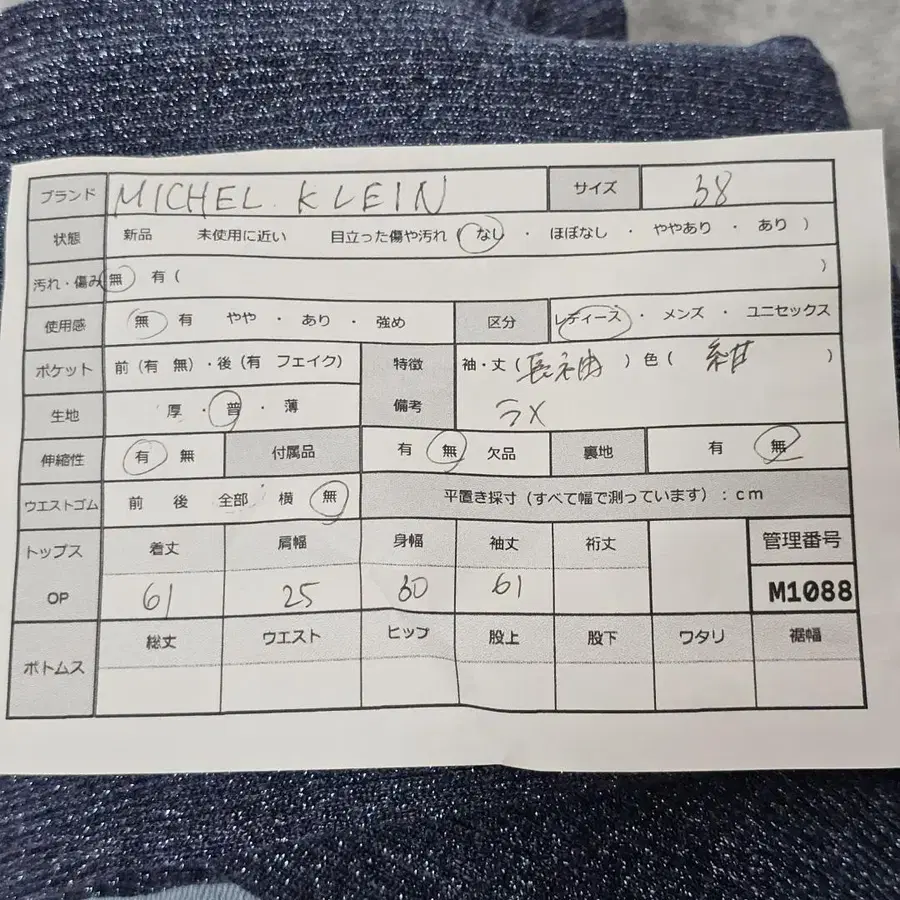 ブランド MICHEL KLEIN サイズ 38
状態 新品 未使用に近い 目立った傷や汚れ ( なし ・ ほぼなし ・ ややあり ・ あり )
汚れ・傷み 無 有 ( )
使用感 無 有 やや ・ あり ・ 強め 区分 レディース ・ メンズ ・ ユニセックス
ポケット 前 (有 無) ・ 後 (有 フェイク) 特徴 袖・丈 ( 長袖 ) 色 ( 紺 )
生地 厚 ・ 普 ・ 薄 備考 ラメ
伸縮性 有 無 付属品 有 無 欠品 裏地 有 無
ウエストゴム 前 後 全部 横 無 平置き採寸 (すべて幅で測っています) : cm
トップス 着丈 肩幅 身幅 袖丈 裄丈 管理番号
OP 61 25 30 61 M1088
ボトムス 総丈 ウエスト ヒップ 股上 股下 ワタリ 裾幅